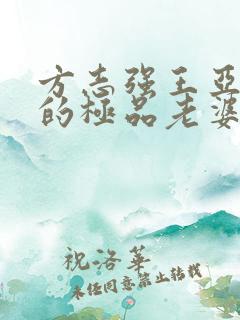 方志强王亚
的極品老婆
祝洛華
未经同意禁止转载